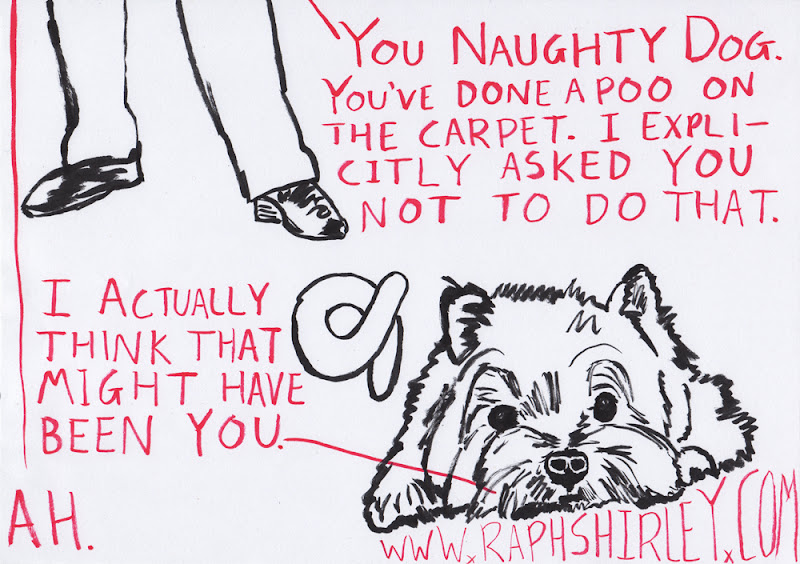 You Naughty Dog.
You've done a poo on
the carpet. I expli-
citly asked you
not to do that.
I Actually
think that
might have
been you.
Ah.
www.raphshirley.com